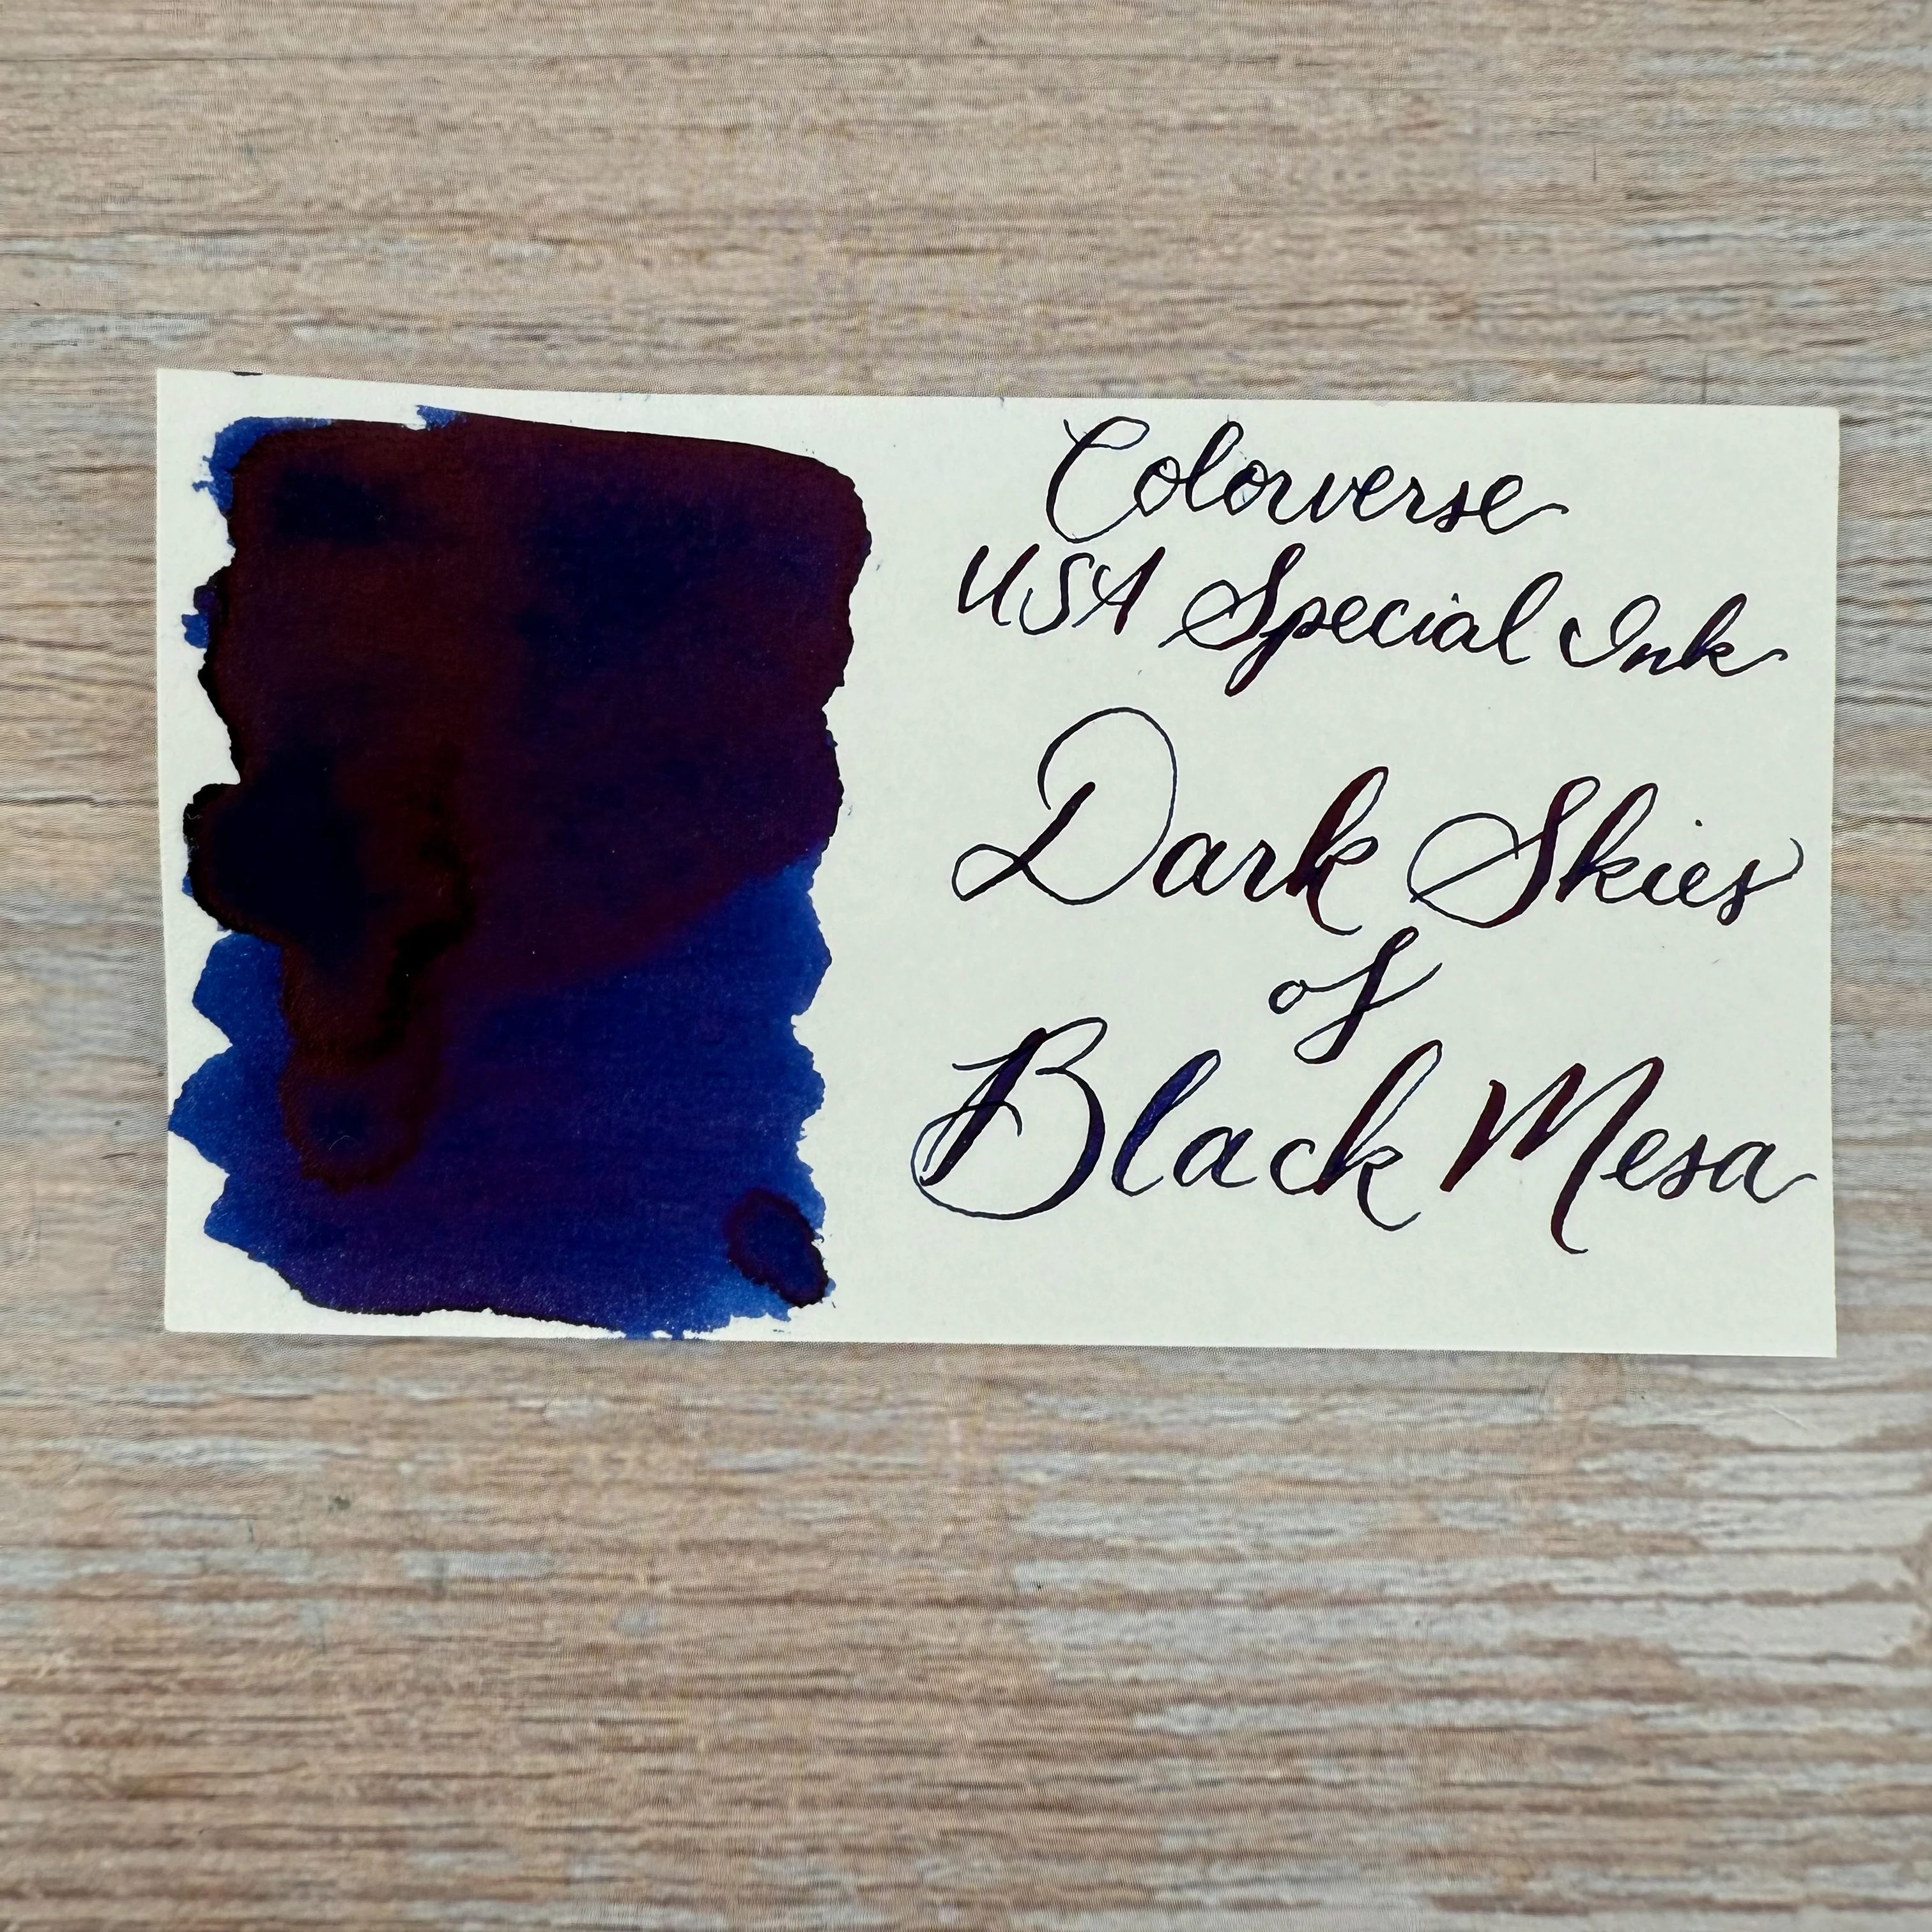 Colorverse
USA Special Ink
Dark Skies
of
Black Mesa